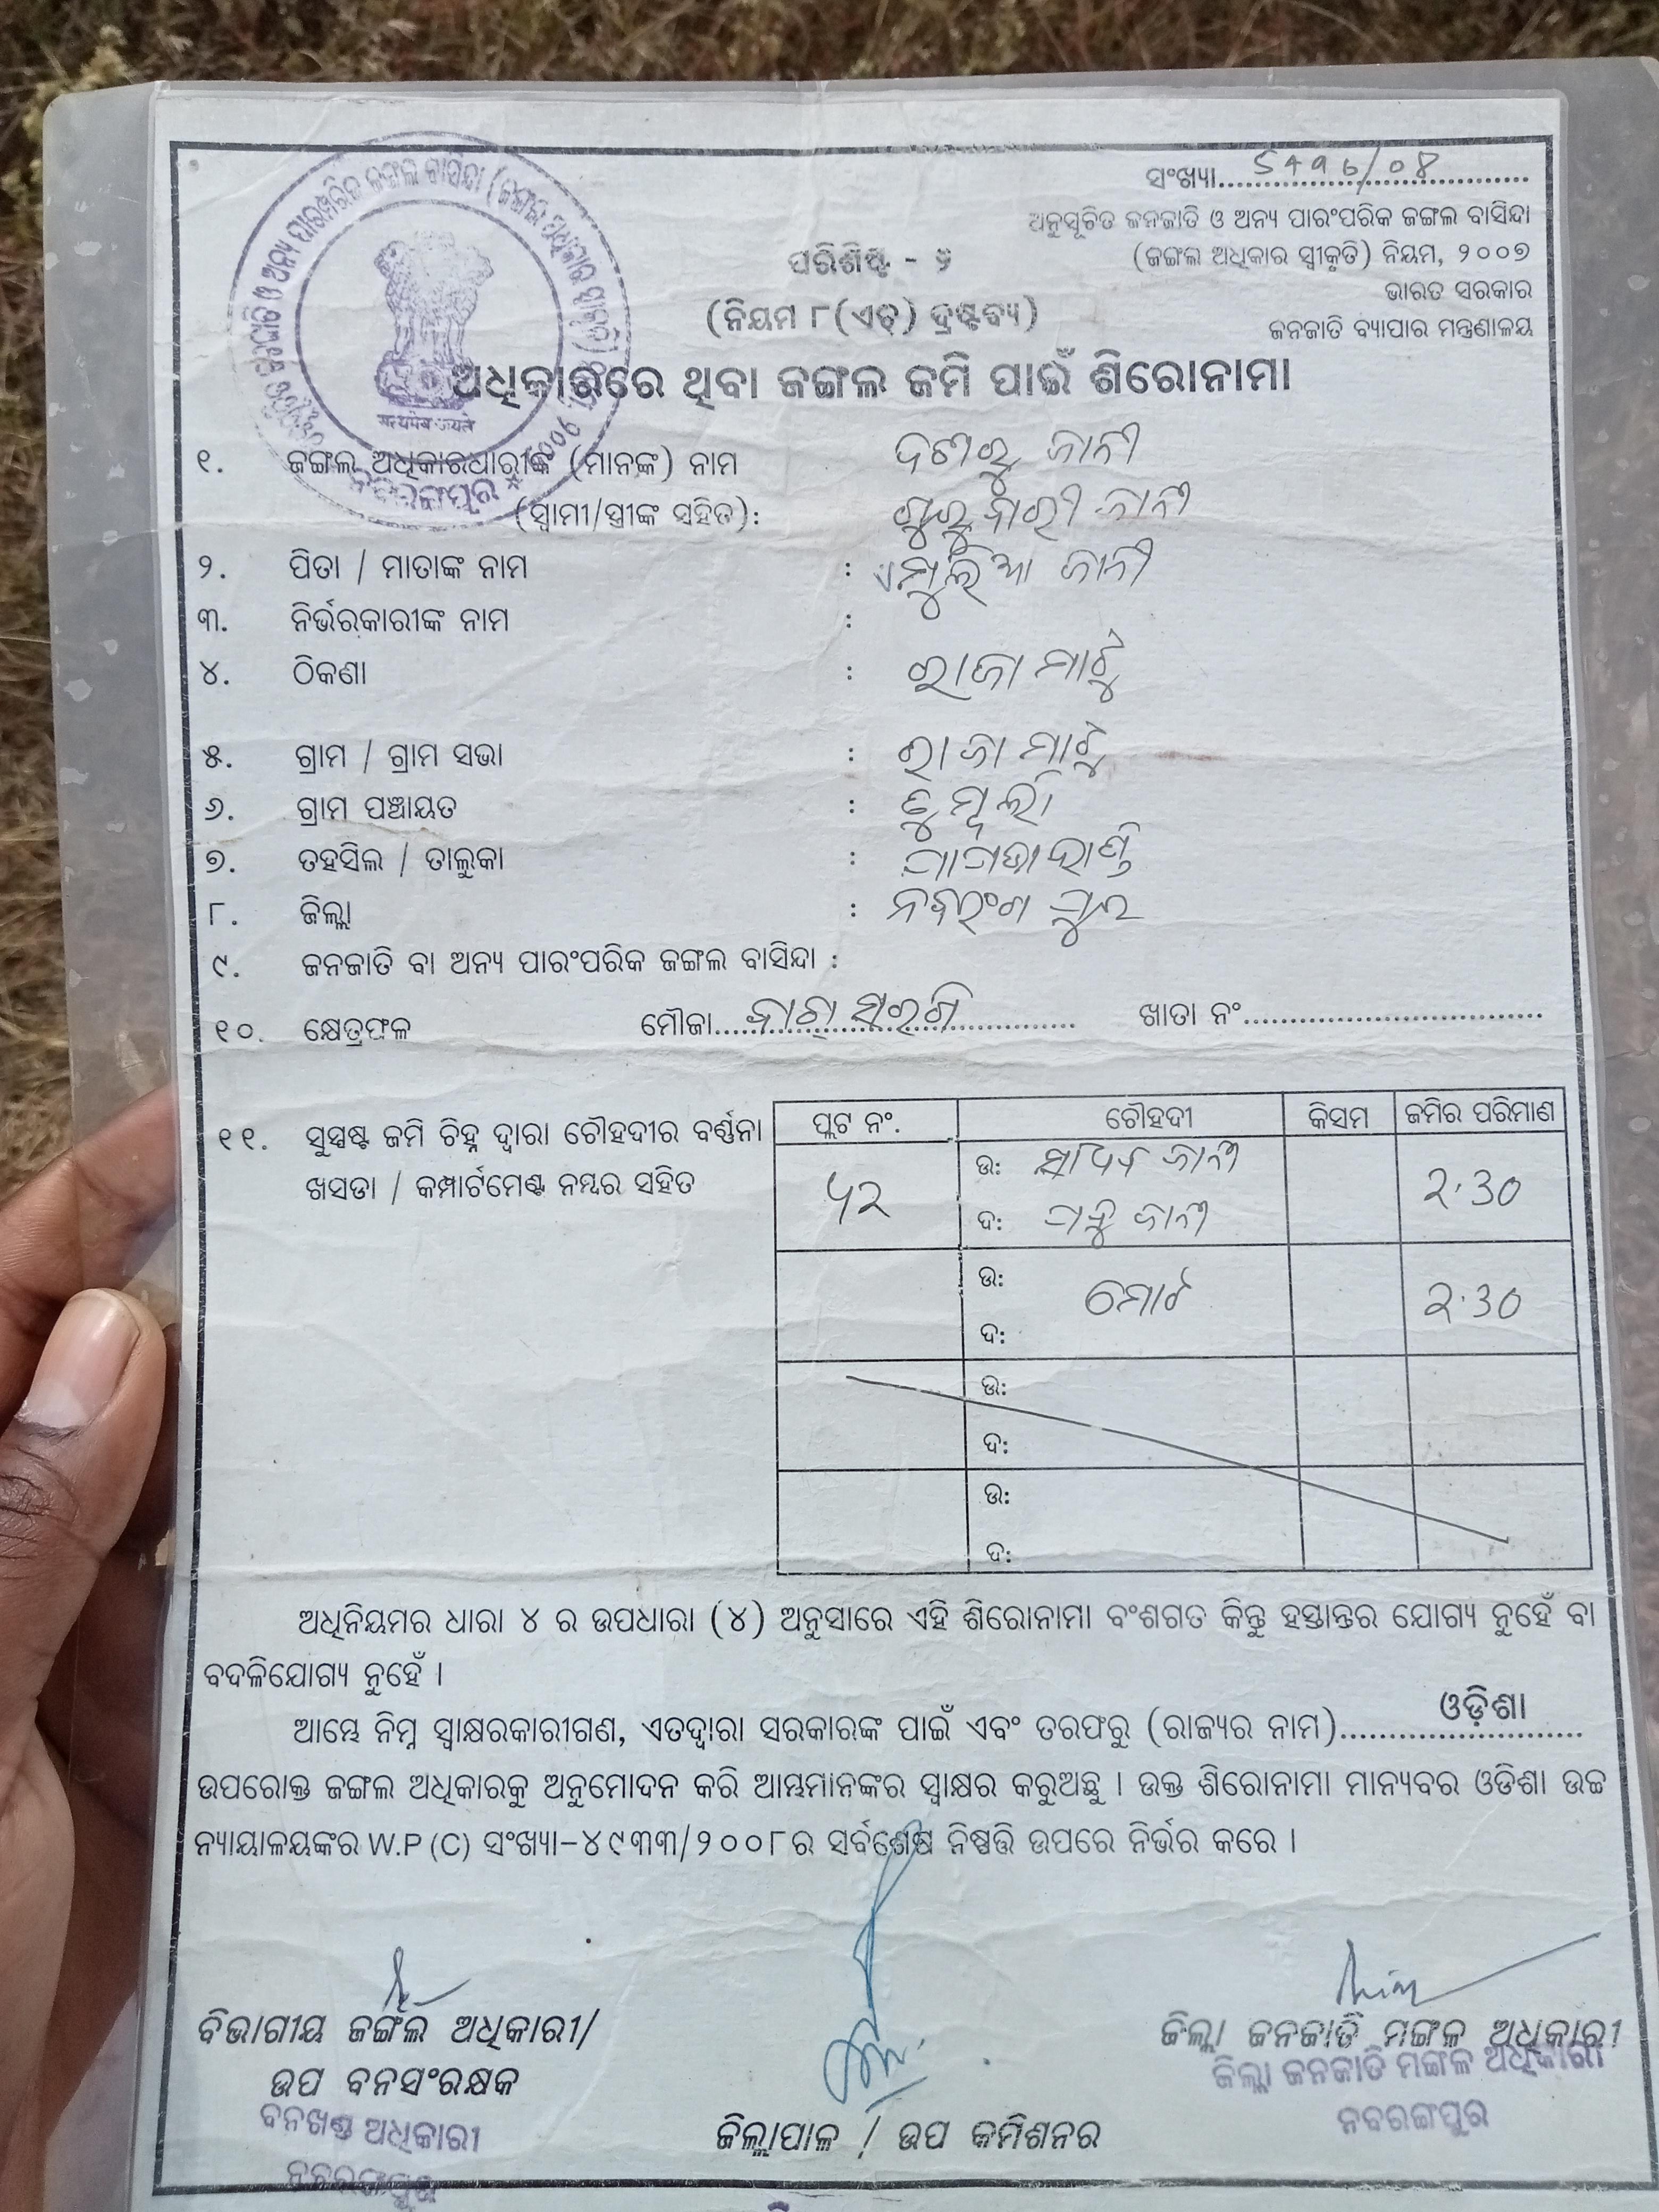 ସଂଖ୍ୟା..............................
ଅନୁସୂଚିତ ଜନଜାତି ଓ ଅନ୍ୟ ପାରଂପରିକ ଜଙ୍ଗଲ ବାସିନ୍ଦା
(ଜଙ୍ଗଲ ଅଧିକାର ସ୍ୱୀକୃତି) ନିୟମ, ୨୦୦୭
ଭାରତ ସରକାର
ଜନଜାତି ବ୍ୟାପାର ମନ୍ତ୍ରଣାଳୟ
ପରିଶିଷ୍ଟ -
(ନିୟମ ୮(ଏଚ୍) ଦ୍ରଷ୍ଟବ୍ୟ)
सत्यमेव जयते
ଅଧିକାରରେ ଥିବା ଜଙ୍ଗଲ ଜମି ପାଇଁ ଶିରୋନାମା
୧. ଜଙ୍ଗଲ ଅଧିକାରଧାରୀଙ୍କ (ମାନଙ୍କ) ନାମ ଜାନୀ
(ସ୍ୱାମୀ/ସ୍ତ୍ରୀଙ୍କ ସହିତ): ଗୁରୁବାରୀ ଜାନୀ
୨. ପିତା / ମାତାଙ୍କ ନାମ : ଜାନୀ
୩. ନିର୍ଭରକାରୀଙ୍କ ନାମ :
୪. ଠିକଣା : ରାଜାମାଟୁ
୫. ଗ୍ରାମ / ଗ୍ରାମ ସଭା : ରାଜାମାଟୁ
୬. ଗ୍ରାମ ପଞ୍ଚାୟତ :
୭. ତହସିଲ / ତାଲୁକା : ପାପଡାହାଣ୍ଡି
୮. ଜିଲ୍ଲା : ନବରଂଗପୁର
୯. ଜନଜାତି ବା ଅନ୍ୟ ପାରଂପରିକ ଜଙ୍ଗଲ ବାସିନ୍ଦା :
୧୦. କ୍ଷେତ୍ରଫଳ ମୌଜା.............................. ଖାତା ନଂ..............................
୧୧. ସୁସ୍ପଷ୍ଟ ଜମି ଚିହ୍ନ ଦ୍ୱାରା ଚୌହଦୀର ବର୍ଣ୍ଣନା
ଖସଡା / କମ୍ପାର୍ଟମେଣ୍ଟ ନମ୍ବର ସହିତ
ପ୍ଲଟ ନଂ. ଚୌହଦୀ କିସମ ଜମିର ପରିମାଣ
ଉ: ଜାନୀ
ଦ: ଜାନୀ
୨.30
ଉ:
ମୋଟ ୨.30
ଦ:
ଉ:
ଦ:
ଉ:
ଦ:
ଅଧିନିୟମର ଧାରା ୪ ର ଉପଧାରା (୪) ଅନୁସାରେ ଏହି ଶିରୋନାମା ବଂଶଗତ କିନ୍ତୁ ହସ୍ତାନ୍ତର ଯୋଗ୍ୟ ନୁହେଁ ବା
ବଦଳିଯୋଗ୍ୟ ନୁହେଁ ।
ଆମ୍ଭେ ନିମ୍ନ ସ୍ୱାକ୍ଷରକାରୀଗଣ, ଏତଦ୍ୱାରା ସରକାରଙ୍କ ପାଇଁ ଏବଂ ତରଫରୁ (ରାଜ୍ୟର ନାମ)......ଓଡ଼ିଶା......
ଉପରୋକ୍ତ ଜଙ୍ଗଲ ଅଧିକାରକୁ ଅନୁମୋଦନ କରି ଆମ୍ଭମାନଙ୍କର ସ୍ୱାକ୍ଷର କରୁଅଛୁ । ଉକ୍ତ ଶିରୋନାମା ମାନ୍ୟବର ଓଡିଶା ଉଚ୍ଚ
ନ୍ୟାୟାଳୟଙ୍କର W.P (C) ସଂଖ୍ୟା-୪୯୩୩/୨୦୦୮ର ସର୍ବଶେଷ ନିଷ୍ପତ୍ତି ଉପରେ ନିର୍ଭର କରେ ।
ବିଭାଗୀୟ ଜଙ୍ଗଲ ଅଧିକାରୀ/
ଉପ ବନସଂରକ୍ଷକ
ବନଖଣ୍ଡ ଅଧିକାରୀ
ଜିଲ୍ଲାପାଳ / ଉପ କମିଶନର
ଜିଲ୍ଲା ଜନଜାତି ମଙ୍ଗଳ ଅଧିକାରୀ
ଜିଲ୍ଲା ଜନଜାତି ମଙ୍ଗଳ ଅଧିକାରୀ
ନବରଙ୍ଗପୁର